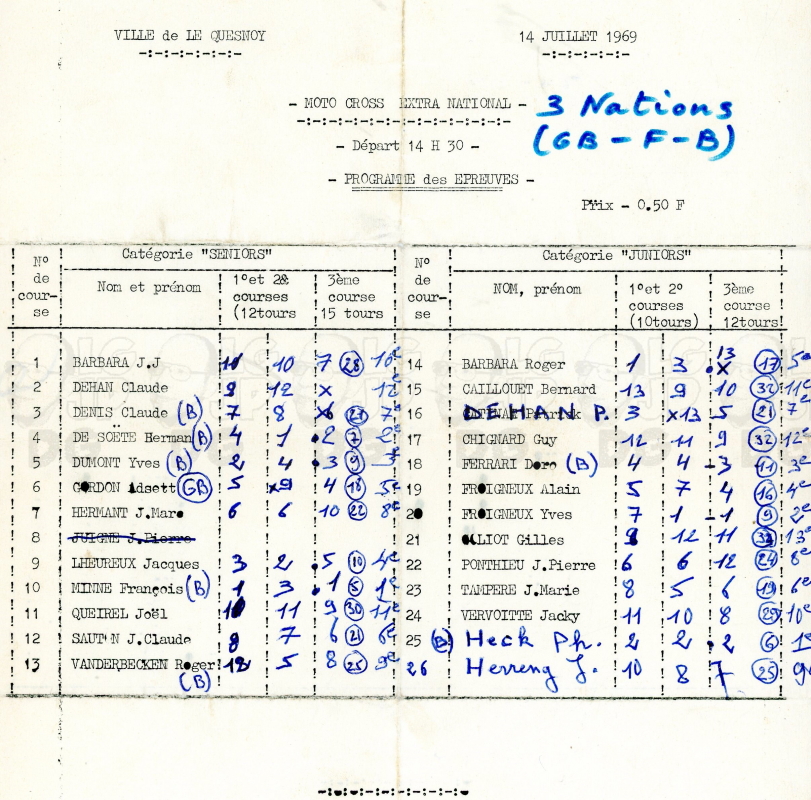 VILLE de LE QUESNOY 14 JUILLET 1969
- MOTO CROSS EXTRA NATIONAL - 3 Nations
(GB - F - B)
- Départ 14 H 30 -
- PROGRAMME des EPREUVES -
Prix - 0.50 F
N° de cour- se Catégorie "SENIORS" N° de cour- se Catégorie "JUNIORS"
Nom et prénom 1°et 2è courses (12tours 3ème course 15 tours NOM, prénom 1°et 2° courses (10tours) 3ème course 12tours
1 BARBARA J.J 10 7 28 10e 14 BARBARA Roger 1 3 13 x 17 5e
2 DEHAN Claude 9 12 x 12e 15 CAILLOUET Bernard 13 9 10 32 11e
3 DENIS Claude (B) 7 8 21 7e 16 DEHAN P. 3 x13 5 21 7e
4 DE SOËTE Herman (B) 4 1 2 7 2e 17 CHIGNARD Guy 12 11 9 32 12e
5 DUMONT Yves (B) 2 4 3 9 3e 18 FERRARI Doro (B) 4 4 3 11 3e
6 GORDON Adsett (GB) 5 x9 4 18 5e 19 FROIGNEUX Alain 5 7 4 16 4e
7 HERMANT J.Marc 6 6 10 22 8e 20 FROIGNEUX Yves 7 1 1 9 2e
8 JUIGNE J.Pierre 21 LIOT Gilles 12 11 13e
9 LHEUREUX Jacques 3 2 5 10 4e 22 PONTHIEU J.Pierre 6 6 12 24 8e
10 MINNE François (B) 1 3 1 5 1e 23 TAMPERE J.Marie 8 5 6 19 6e
11 QUEIREL Joël 11 9 30 11e 24 VERVOITTE Jacky 11 10 8 29 10e
12 J.Claude 8 7 6 21 6e 25 (B) Heck Ph. 2 2 2 6 1e
13 VANDERBECKEN Roger (B) 12 5 8 25 9e 26 Herreng J. 10 8 7 25 9e